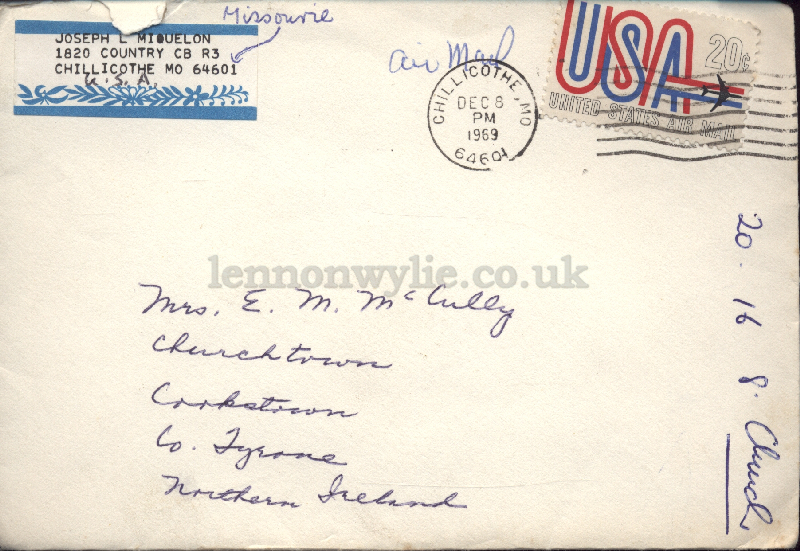 Missourie
JOSEPH L MIQUELON
1820 COUNTRY CB R3
CHILLICOTHE MO 64601
U.S.A
air Mail
CHILLICOTHE, MO
DEC 8
PM
1969
64601
USA 20c
UNITED STATES AIR MAIL
lennonwylie.co.uk
Mrs. E. M. McCully
Churchtown
Cookstown
Co. Tyrone
Northern Ireland
20. 16 8. Church